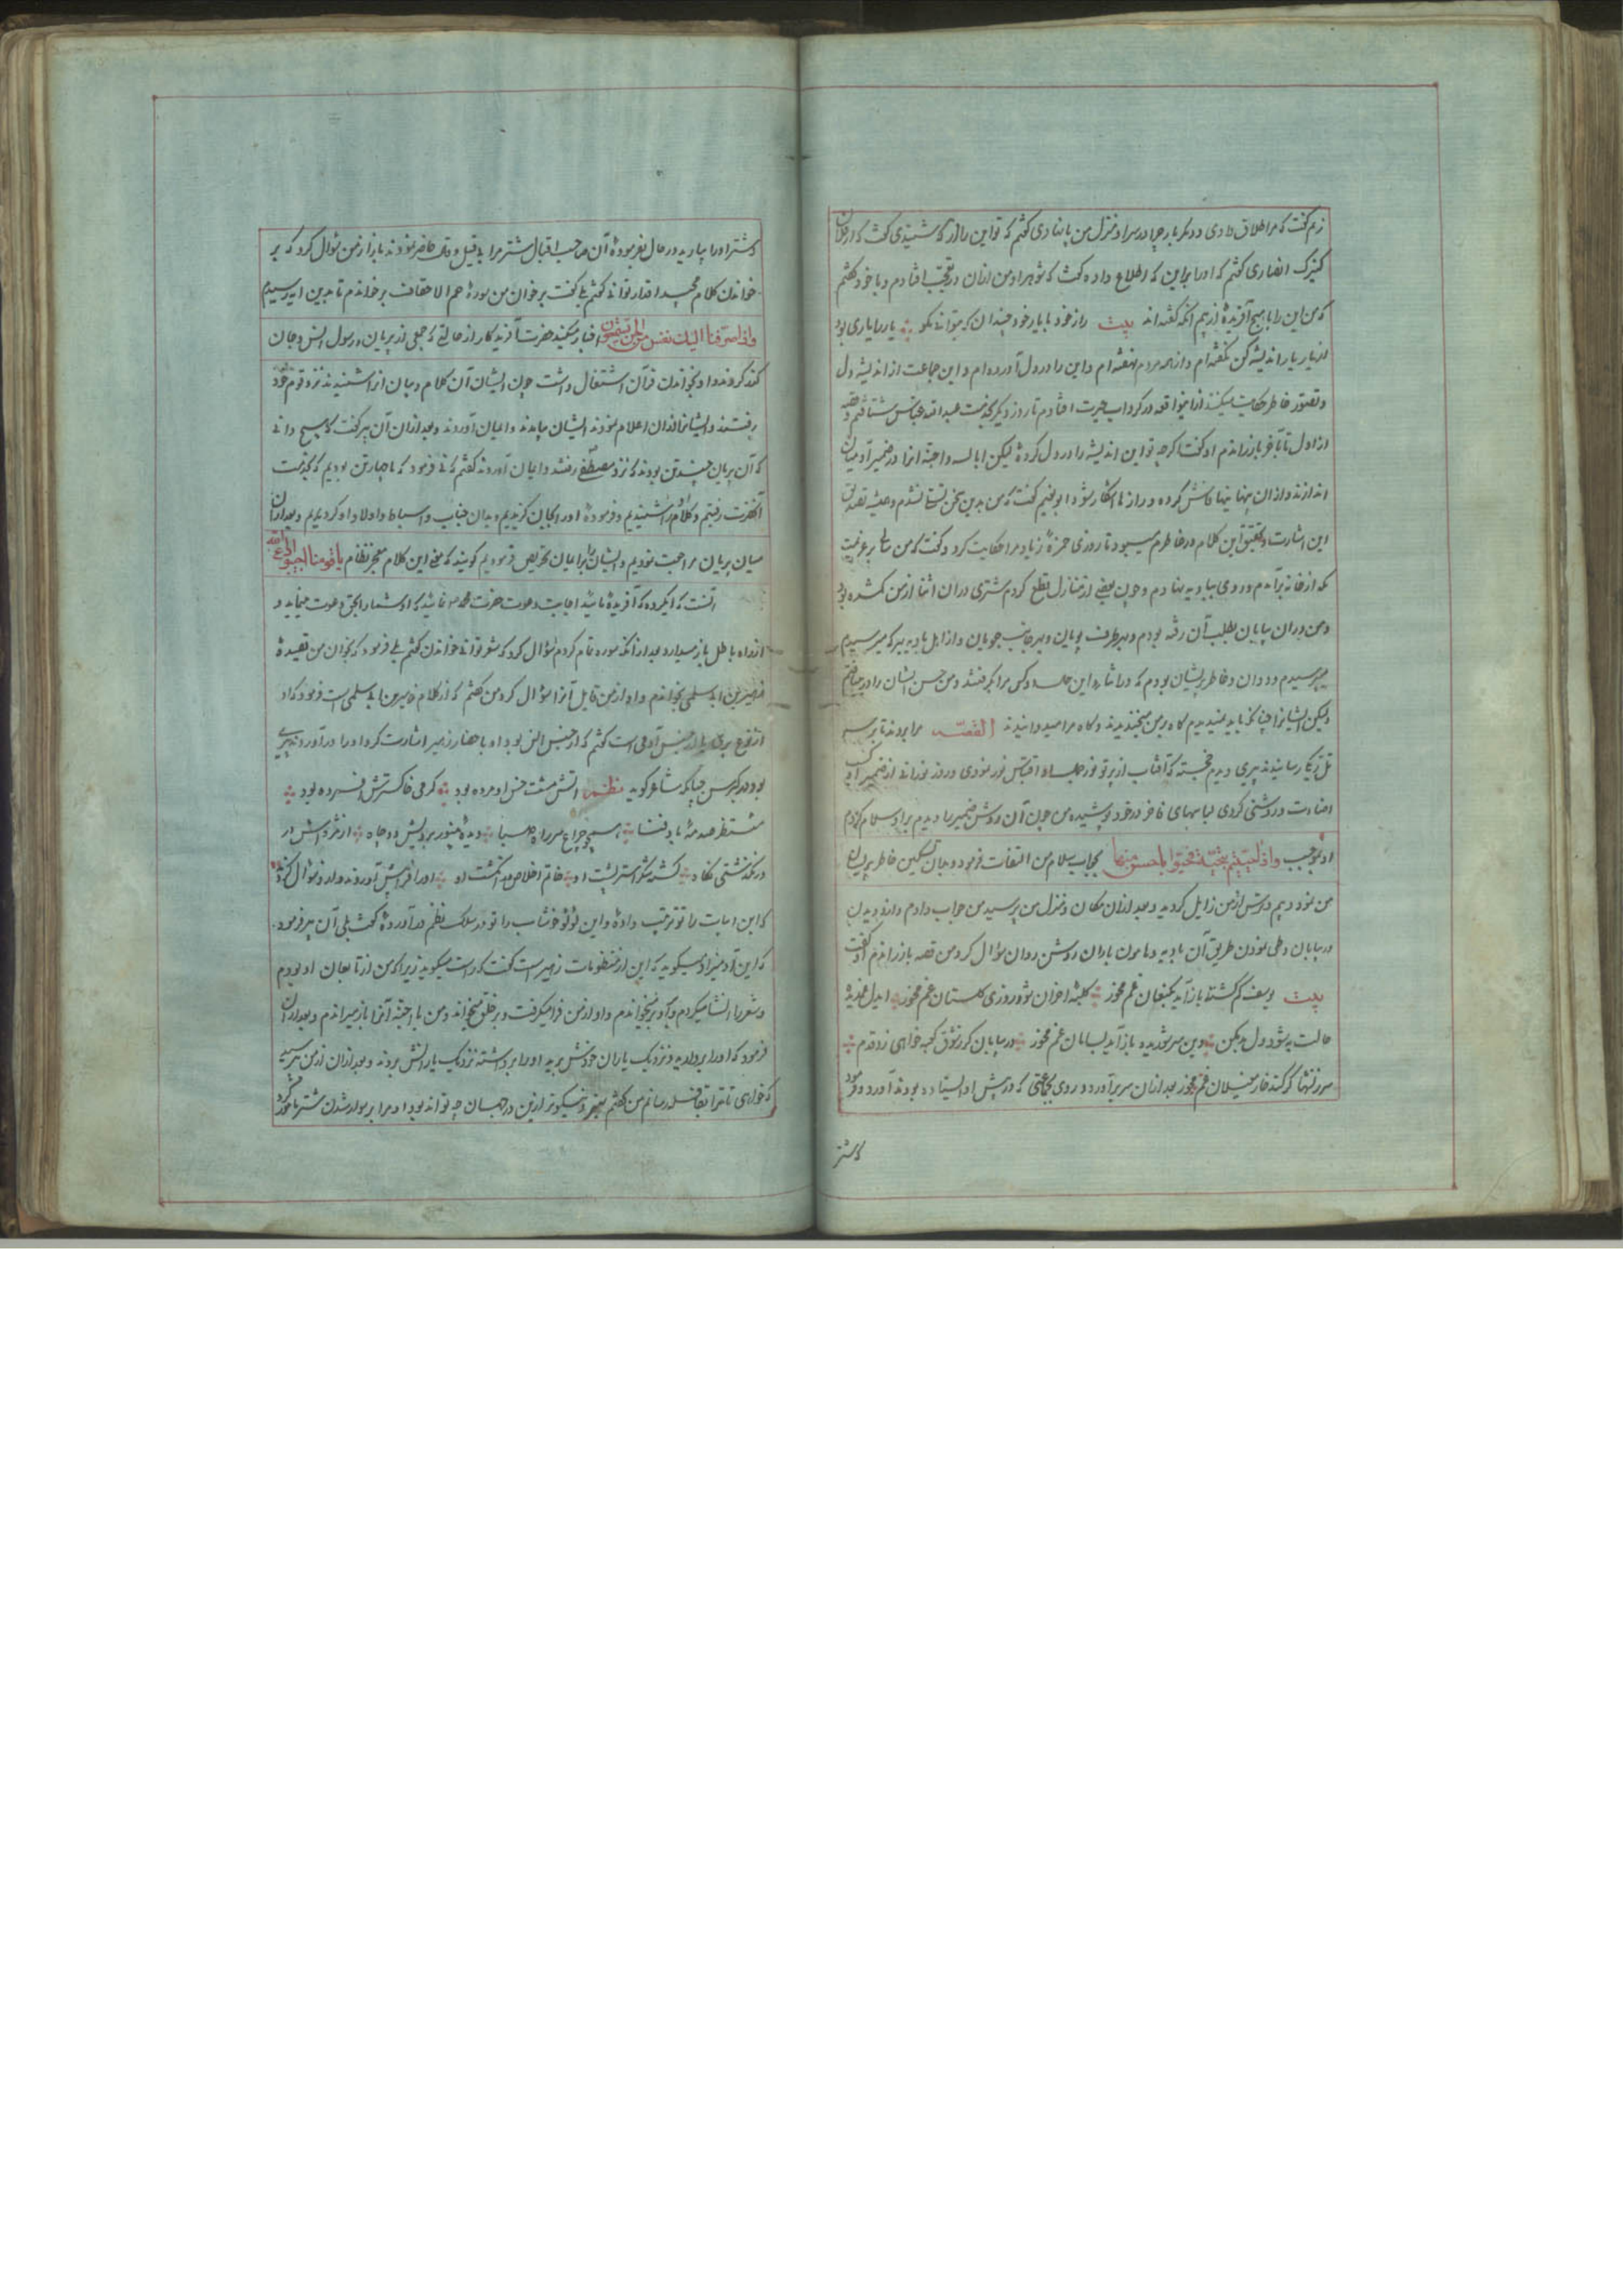 زنم گفت که مرا طلاق دادی و دیگر بار چرا در سرا و منزل من پا نهادی گفتم که تو این را از که شنیدی گفت که از فلان
کنیزک انصاری گفتم که او را بر این که اطلاع داده گفت که شوهر او من ازان در تعجب افتادم و با خود گفتم
که من این را با هیچ آفریده از بیم آنکه گفته اند بیت راز خود با یار خود چندان که بتوانی مگو یار را یاری بود
از یار یار اندیشه کن نگفته ام و از همه مردم نهفته ام و این را در دل آورده ام و این جماعت از اندیشه دل
و تصور خاطر حکایت میکنند ازین واقعه در گرداب حیرت افتادم تا روز دیگر بخدمت عبد الله عباس شتافتم و قصه
از اول تا آخر باز راندم او گفت اگر چه تو این اندیشه را در دل کرده لیکن ابالسه و اجنه آنرا در ضمیر آدمیان
اندازند و ازان پنهانیها فاش گردد و رازها آشکار شود ابو نعیم گفت که من بدین سخن تسلی نشدم و همیشه تصدیق
این اشارت و تحقیق این کلام در خاطرم میبود تا روزی حمزه زیاد مرا حکایت کرد و گفت که من سالی بر عزیمت
مکه از خانه برآمدم و روی ببادیه نهادم و چون بعضی از منازل قطع کردم شتری دران اثنا از من گمشده بود
و من دران بیابان بطلب آن رفته بودم و بهر طرف پویان و بهر جانب جویان و از اهل بادیه بهر که میرسیدم
میپرسیدم و دوان و خاطر پریشان بودم که در اثناء این حال دو کس مرا بگرفتند و من حس ایشان را در میافتم
ولیکن ایشانرا چنانکه باید نمیدیدم گاه بر من میخندیدند و گاه مرا میدوانیدند القصه مرا بردند تا بر سر
تل ریگ رسانیدند پیری دیدم خجسته که آفتاب از پرتو نور جمال او اقتباس نور نمودی و روز نورانی از ضمیر او کسب
اضاءت و روشنی کردی لباسهای فاخر در خود پوشیده من چون آن روشن ضمیر را دیدم بر او سلام کردم
او بموجب واذا حییتم بتحیة فحیوا باحسن منها بجواب سلام من التفات فرمود و بجان تسکین خاطر پریشان
من نمود دیم دهشتش از من زایل گردید و بعد ازان مکان و منزل من پرسید من جواب دادم و از دویدن
در بیابان و طی نمودن طریق آن بادیه و هامون یاران روشن روان سؤال کرد من قصه باز راندم او گفت
بیت یوسف گم گشته باز آید بکنعان غم مخور کلبه احزان شود روزی گلستان غم مخور ایدل غمدیده
حالت به شود دل بد مکن وین سر شوریده باز آید بسامان غم مخور در بیابان گر ز شوق کعبه خواهی زد قدم
سرزنشها گر کند خار مغیلان غم مخور بعد ازان سر برآورد و روی بجماعتی که در پیش او ایستاده بودند آورد و فرمود
که شتر
که شتر او را بیارید در حال بفرموده آن صاحب اقبال شتر مرا بی قیل و قال حاضر نمودند باز از من سؤال کرد که بر
خواندن کلام مجید اقدار توانی گفتم بلی گفت بر خوان من سوره حم الاحقاف بر خواندم تا بدین آیه رسیدم
واذ صرفنا الیک نفرا من الجن یستمعون اخبار میکند حضرت آفریدگار از حالتی که جمعی از پریان برسول انس و جان
گذر کردند و او بخواندن قرآن اشتغال داشت چون ایشان آن کلام و بیان از او شنیدند نزد قوم خود
رفتند و ایشانرا ازان اعلام نمودند ایشان بیامدند و ایمان آوردند و بعد ازان آن پیر گفت که هیچ دانی
که آن پریان چند تن بودند که نزد مصطفی رفتند و ایمان آوردند گفتم که نی فرمود که ما چهار تن بودیم که بخدمت
آنحضرت رفتیم و کلام او را شنیدیم و فرموده او را بجان گزیدیم و بدان جناب و اسباط و اولاد او گرویدیم و بعد ازان
میان پریان مراجعت نمودیم و ایشان را بر ایمان تحریص فرمودیم گویند که معنی این کلام معجز نظام یا قومنا اجیبوا داعی الله
آنست که ایکروه که آفریده باشید اجابت دعوت حضرت محمد نمائید که او شما را بحق دعوت مینماید و
از راه باطل باز میدارد بعد از آنکه سوره تمام کردم سؤال کرد که شعر توانی خواندن گفتم بلی فرمود که بخوان من قصیده
زهیر بن ابی سلمی بخواندم و او از من قایل آنرا سؤال کرد من گفتم که از کلام زهیر بن ابی سلمی است فرمود که او
از نوع پری یا از جنس آدمی است گفتم که از جنس انس بود او باحضار زهیر اشارت کرد او را در آوردند پیری
بود در کبر سن چنانکه شاعر گوید نظم آتش مشت خس او مرده بود گرمی خاکسترش افسرده بود
منتظر صدمه باد فنا همچو چراغ سر راه صبا دیده بینور برویش دو چاه از مژه اش در
در نگذشتی نگاه گشته سگر استر پشت او خاتم اخلاص بد انگشت او او را فرا پیش آوردند و از او سؤال کردند
که این ابیات را تو ترتیب داده و این لؤلؤ خوشاب را تو در سلک نظم در آورده گفت بلی آن پیر فرمود
که این آدمیزاد میگوید که این از منظومات زهیر است گفت که راست میگوید زیرا که من از تابعان او بودم
و شعر را انشا میکردم و باو بر میخواندم و او از من فرا میگرفت و بر خلق میخواند و من با اجنه آنرا باز میراندم و بعد ازان
فرمود که او را بردارید و نزدیک یاران خودش برید او را برداشته نزدیک یارانش بردند و بعد ازان از من پرسید
که خواهی تا ترا بقافله رسانم من گفتم بهتر و نیکوتر ازین در جهان چه تواند بود او مرا بر سوار شدن شتر مأمور کرد